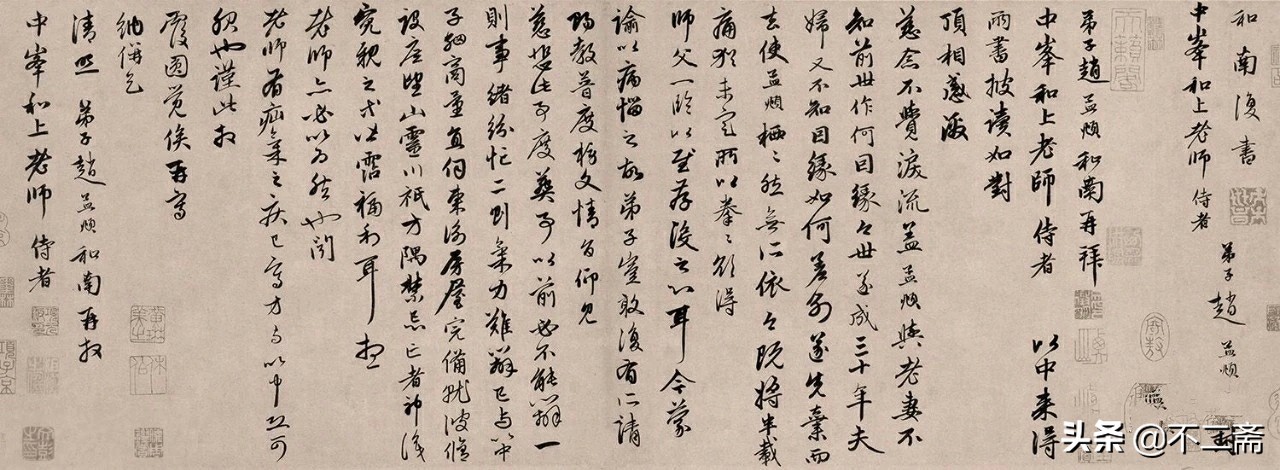 和南復書
中峯和上老師 侍者
弟子趙孟頫 封
弟子趙孟頫和南再拜
中峯和上老師 侍者 以中來得
兩書披讀如對
頂相感激
慈念不覺淚流蓋孟頫與老妻不
知前世作何因緣今世遂成三十年夫
婦又不知因緣如何差別遂先棄而
去使孟頫栖栖然無所依今既將半載
痛猶未定所以拳拳欲得
師父一臨以慰存沒之心耳今蒙
諭以病惱之故弟子豈敢復有所請
賜教普度榜文情旨仰見
慈悲此事度葬事以前必不能辦一
則事緒紛忙二則氣力難辦已與以中
子細商量直伺東衡房屋完備就彼修
設庶望山靈川祇方隅禁忌亡者神儀
冤親之等皆霑福利耳想
老師亦必以為然也聞
老師有疝氣之疾已寫方與以中恐可
服也謹此拜
覆圓覺俟再寫
納併乞
清照 弟子趙孟頫和南再拜
中峯和上老師 侍者
头条 @不二斋